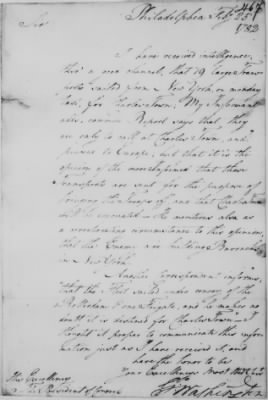 467
Philadelphia Feby 25
1782
Sir
I have received intelligence,
thro' a good channel, that 19 large Trans
ports sailed from New York on monday
last, for Charles town; My Informant
adds, common Report says that they
are only to call at Charles Town, and
proceed to Europe; but that it is the
opinion of the more informed that these
transports are sent for the purpose of
bringing the troops off, and that Charlestown
will be evacuated. he mentions also as
a corroborating circumstance to this opinion,
that the Enemy are building Barracks
in New York.
Another Correspondent informs,
that the Fleet sailed under convoy of the
a fifty & one frigate, and he makes no
doubt it is destined for Charles Town. I
thought it proper to communicate this infor
mation just as I have received it, and
have the honor to be
Your Excellencys Most Obed
Go Washington
His Excellency
The President of Congress